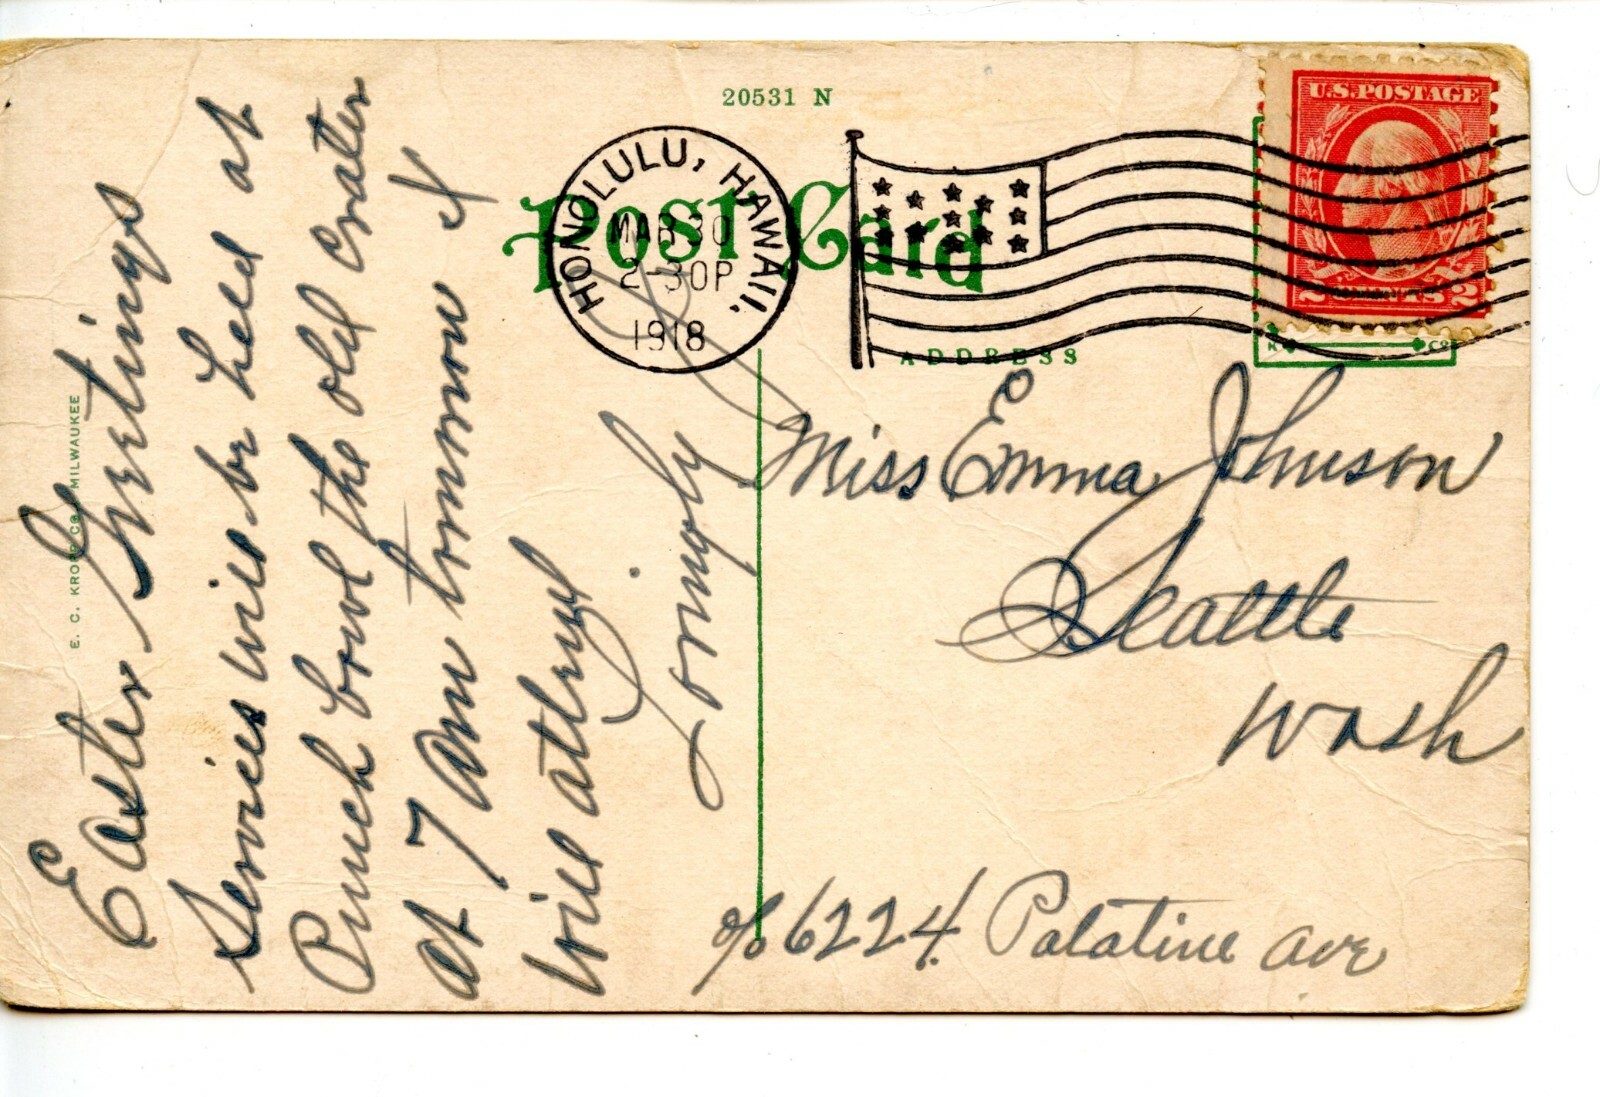 20531 N
Post Card
HONOLULU, HAWAII.
MAR 30
2-30P
1918
U.S. POSTAGE
2 CENTS 2
ADDRESS
E. C. KROPP CO. MILWAUKEE
Easter Greetings
Services will be held at
Punch bowl the old crater
at 7 am tomorrow & I
will attend
Lovingly
Miss Emma Johnson
Seattle
Wash
c/o 6224 Palatine Ave